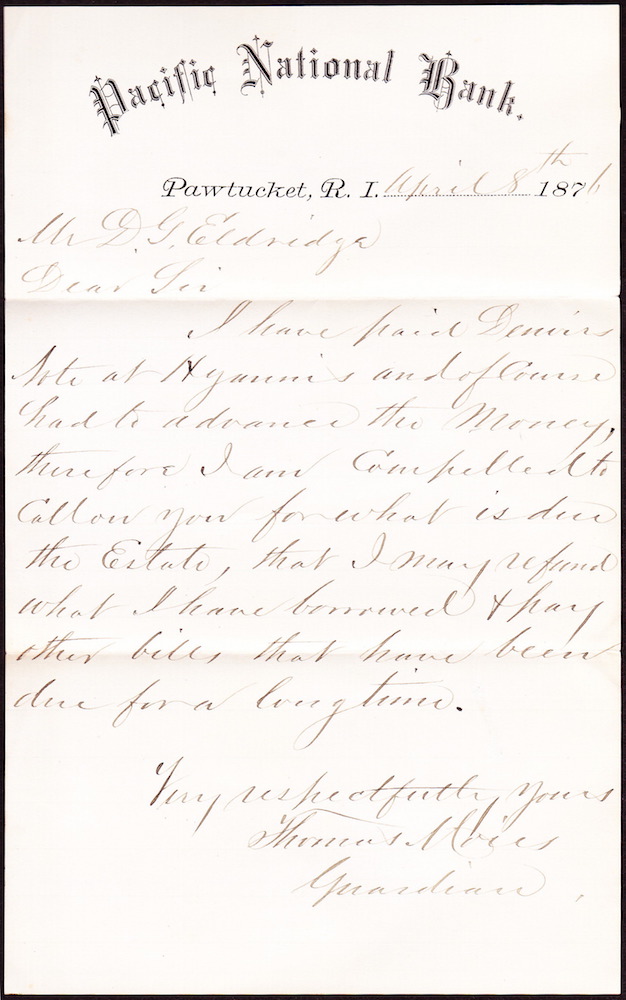 Pacific National Bank.
Pawtucket, R. I. April 8th 1876
Mr D. G. Eldridge
Dear Sir
I have paid Demirs
Note at Hyannis and of Course
had to advance the Money,
therefore I am Compelled to
Call on you for what is due
the Estate, that I may refund
what I have borrowed & pay
other bills that have been
due for a long time.
Very respectfully yours
Thomas Moies
Guardian